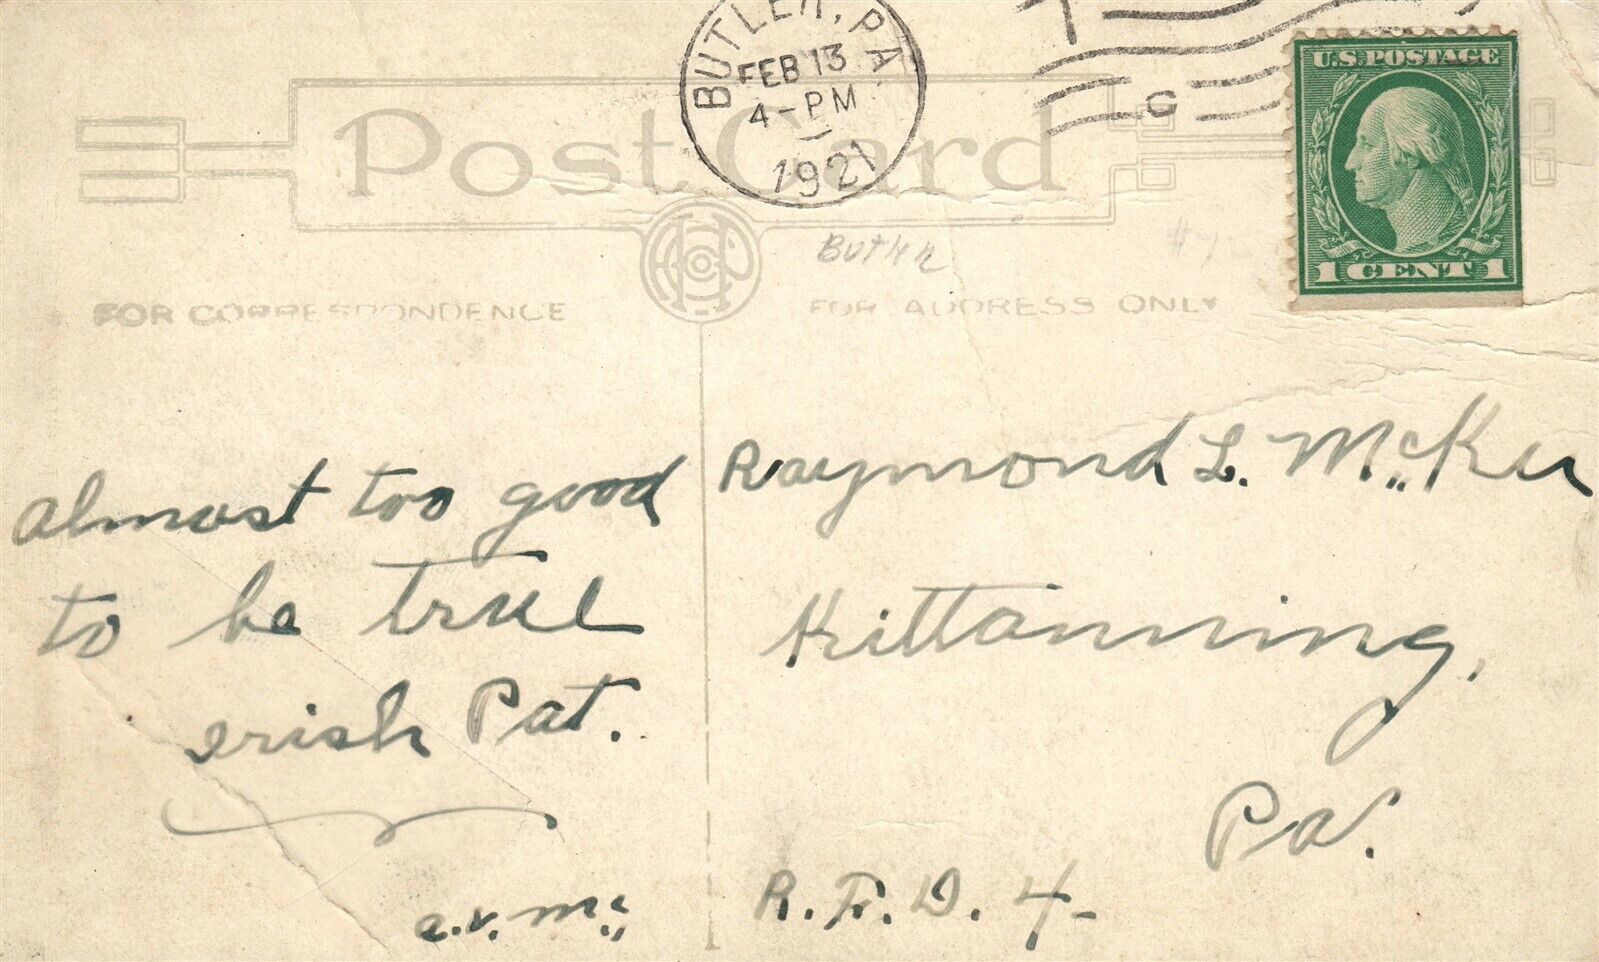 BUTLER, PA.
FEB 13
4-PM
1921
C
U.S. POSTAGE
1 CENT 1
Post Card
Butler
#7
FOR CORRESPONDENCE
FOR ADDRESS ONLY
almost too good
to be true
Irish Pat.
a.v. Mc
Raymond L. McKee
Kittanning,
Pa.
R.F.D. 4-